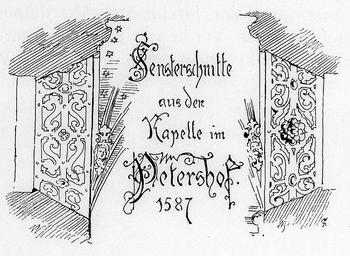 Fensterschnitte
aus der
Kapelle im
Petershof.
1587